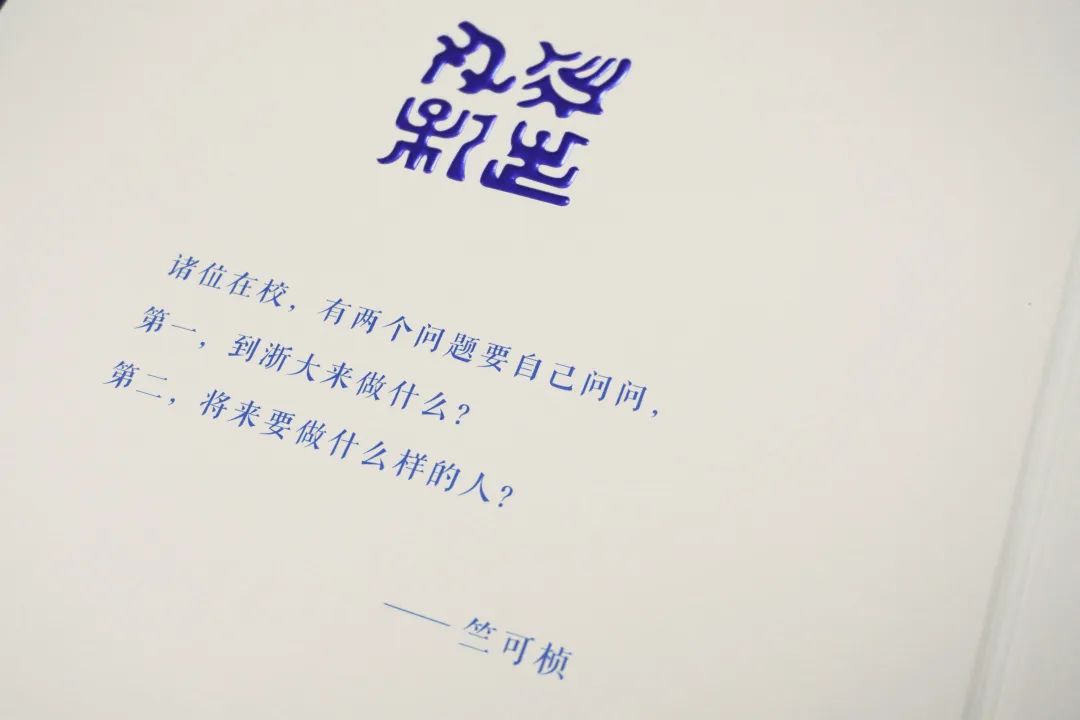 诸位在校，有两个问题要自己问问，
第一，到浙大来做什么？
第二，将来要做什么样的人？
——竺可桢